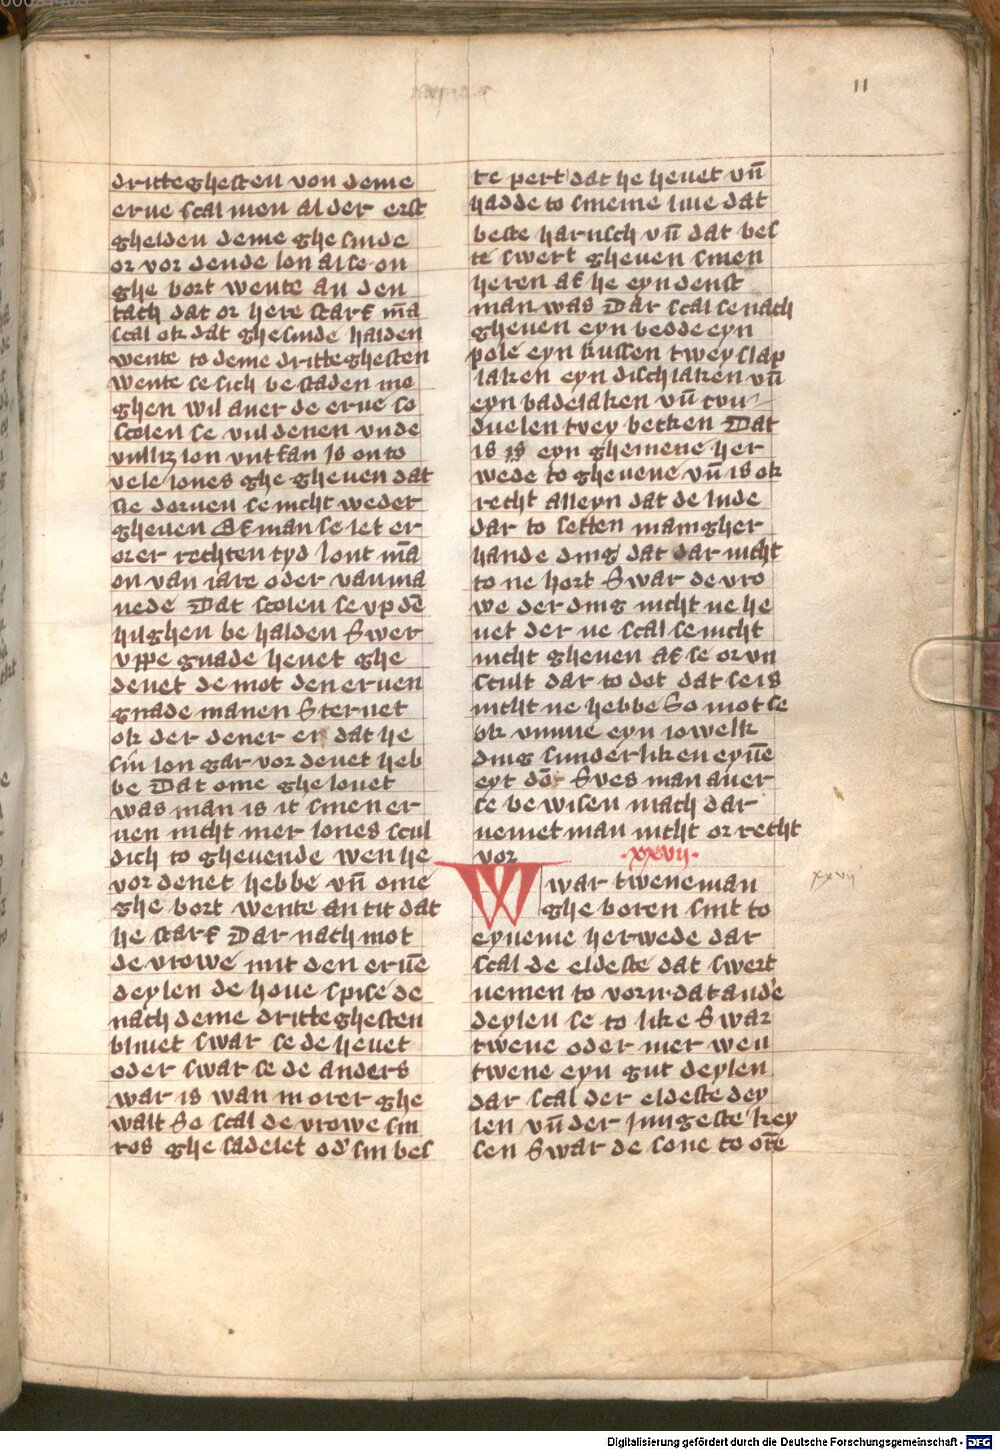 11
dritteghesten von deme
erue scal men al der erst
ghelden deme ghe sinde
or vor dende lon alse on
ghe bort wente an den
tach dat or here starf mā
scal ok dat ghesinde halden
wente to deme dritteghesten
wente se sich be staden mo
ghen wil auer de erue so
scolen se vul denen vnde
vulliz lon vntfan Is on to
vele lones ghe gheuen dat
ne doruen se nicht weder
gheuen Af man se let er
orer rechten tyd lont mā
on van iare oder van ma
nede Dat scolen se vp dē
hilghen be halden Swer
vppe gnade heuet ghe
denet de mot den eruen
gnade manen Steruet
ok der dener er dat he
sin lon gar vor denet heb
be Dat ome ghe louet
was man is it sinen er
uen nicht mer lones scul
dich to gheuende wen he
vor denet hebbe vn̄ ome
ghe bort wente an tit dat
he starf Dar nach mot
de vrowe mit den eruē
deylen de houe spise de
nach deme dritteghesten
bliuet swar se de heuet
oder swar se de anders
war is wan in orer ghe
walt So scal de vrowe sin
ros ghe sadelet od' sin bes
te pert dat he heuet vn̄
hadde to sineme liue dat
beste harnsch vn̄ dat bes
te swert gheuen sinen
heren af he eyn denst
man was Dar scal se nach
gheuen eyn bedde eyn
pole eyn kussen twey slap
laken eyn disch laken vn̄
eyn badelaken vn̄ twu
duelen tvey becken Dat
is is eyn ghemene her
wede to gheuene vn̄ is ok
recht alleyn dat de lude
dar to setten manigher
hande ding dat dar nicht
to ne hort Swar de vro
we der ding nicht ne he
uet der ne scal se nicht
nicht gheuen af se or vn
scult dar to dot dat se is
nicht ne hebbe So mot se
ok vmme eyn iowelk
ding sunderliken eynē
eyt dōn Swes man auer
se be wisen mach dar
nemet man nicht or recht
vor ·xxvii·
War twene man xxvii
ghe boren sint to
eyneme herwede dar
scal de eldeste dat swert
nemen to vorn·dat ande
deylen se to like Swar
twene oder mer wen
twene eyn gut deylen
dar scal der eldeste dey
len vn̄ der Jungeste key
sen Swar de sone to orē
Digitalisierung gefördert durch die Deutsche Forschungsgemeinschaft - DFG